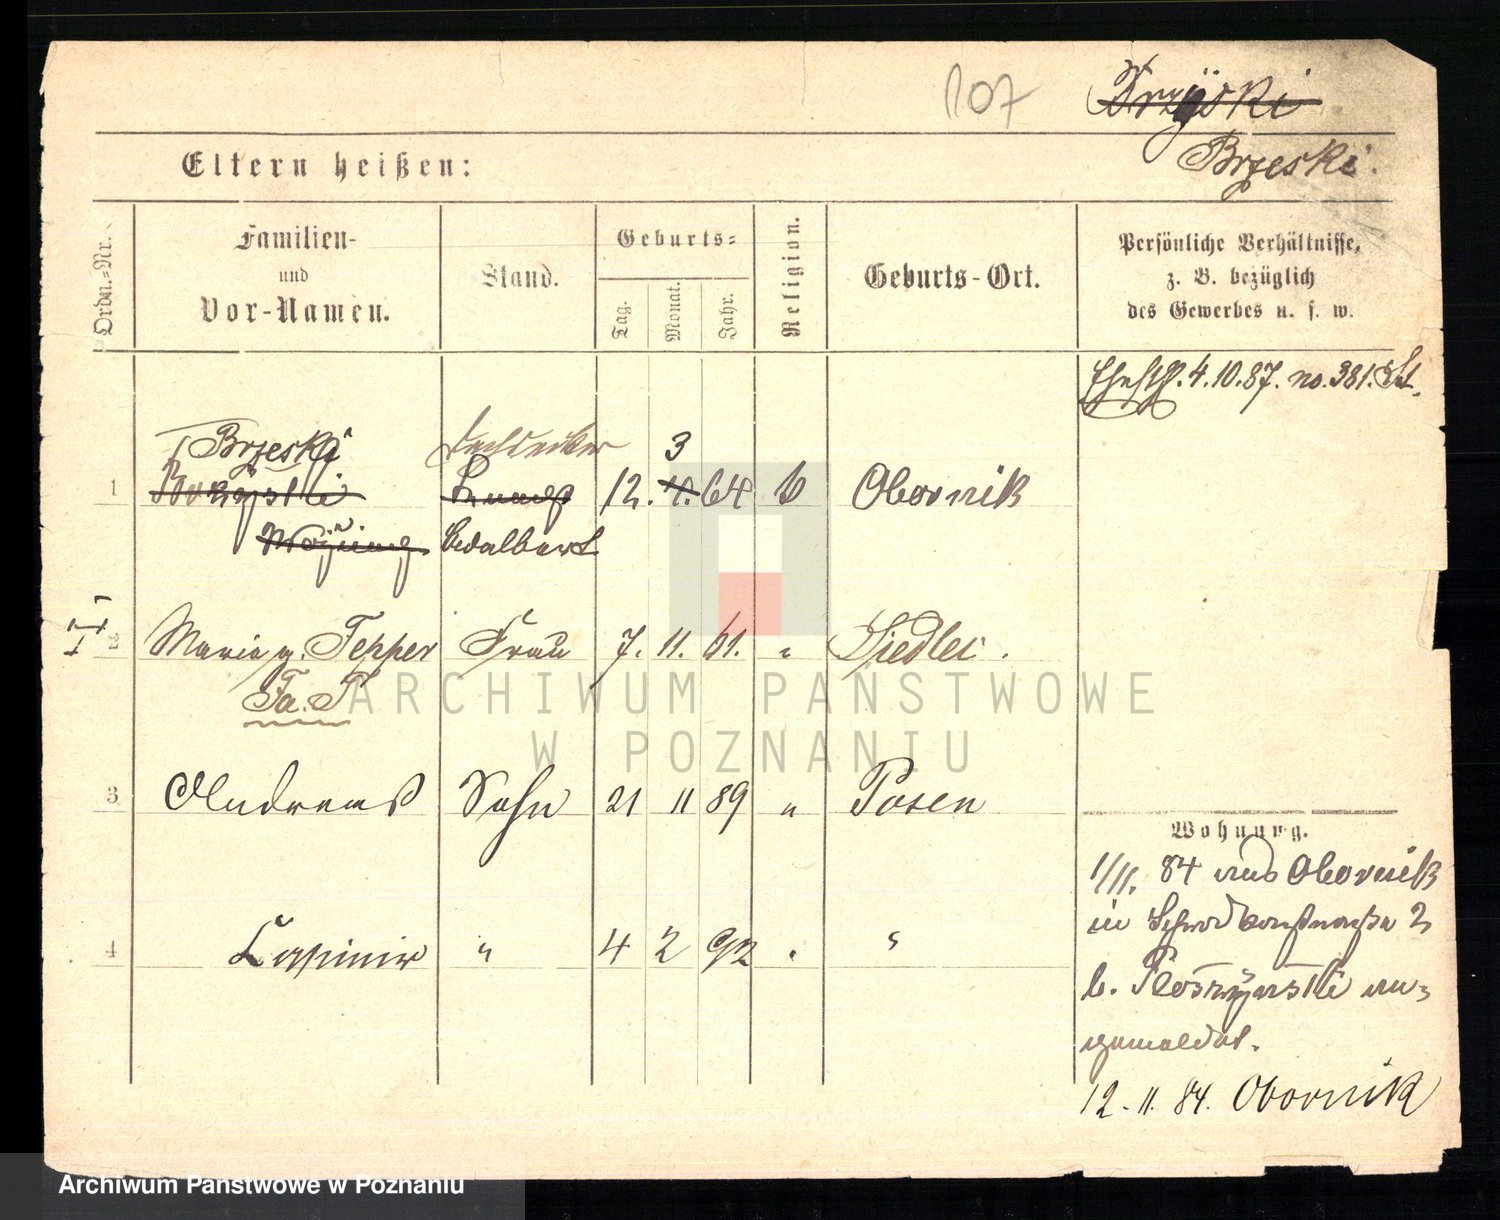 107
Brzeski.
Eltern heißen:
Ordn.-Nr.
Familien-
und
Vor-Namen.
Stand.
Geburts-
Tag.
Monat.
Jahr.
Religion.
Geburts-Ort.
Persönliche Verhältnisse,
z. B. bezüglich
des Gewerbes u. s. w.
4.10.87. no. 381.
Brzeski Dachdecker 3
1 12. 64 k Obornik
Adalbert
I,
2 Marie g. Tepper Frau 7. 11. 61. " Siedlec.
Fa. T
3 Andreas Sohn 21 11 89 " Posen
4 Casimir " 4 2 92 " "
Wohnung.
1/11. 84 aus Obornik
in 2
b. an-
gemeldet.
12. 11. 84. Obornik
ARCHIWUM PAŃSTWOWE
W POZNANIU
Archiwum Państwowe w Poznaniu